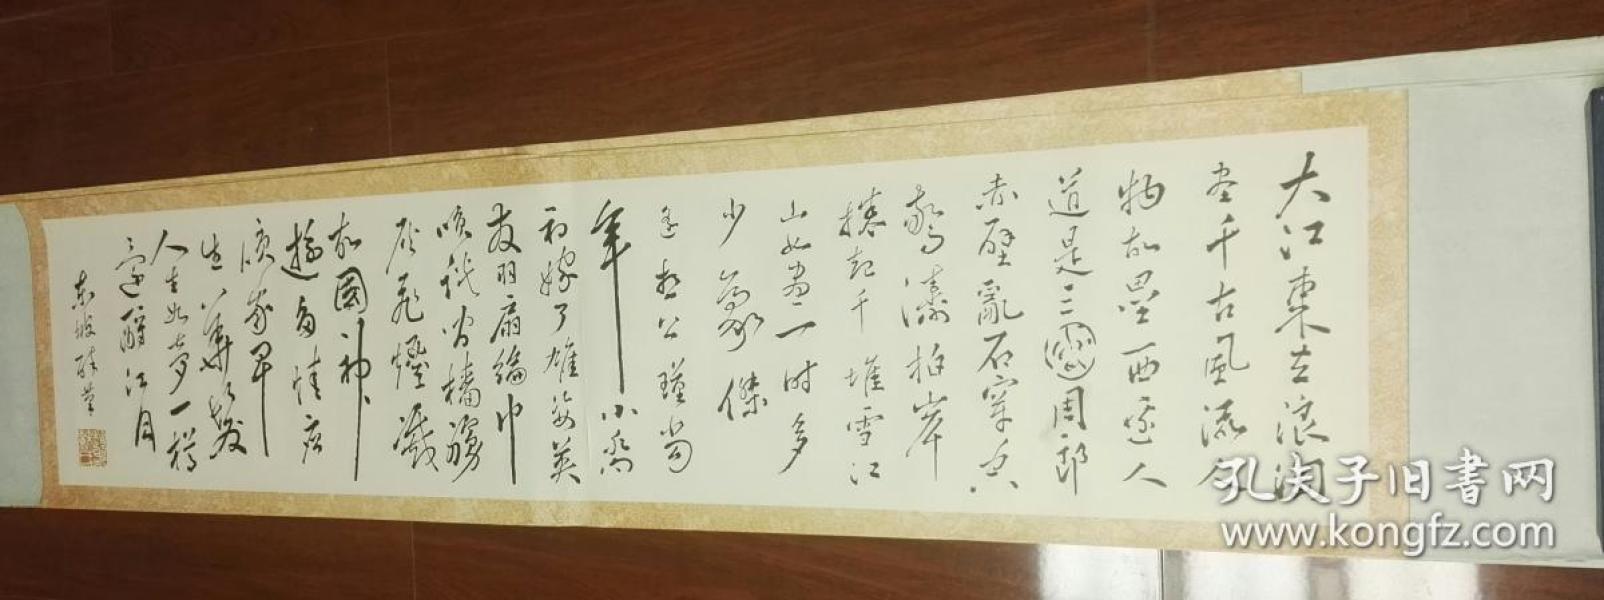 大江東去浪淘
尽千古風流人
物故壘西邊人
道是三國周郎
赤壁亂石穿空
驚濤拍岸
捲起千堆雪江
山如畫一時多
少豪傑
遙想公瑾當
年小喬
初嫁了雄姿英
發羽扇綸巾
談笑間檣艣
灰飛煙滅
故國神
遊多情應
笑我早
生華髮
人生如夢一樽
還酹江月
東坡醉筆
孔夫子旧书网
www.kongfz.com